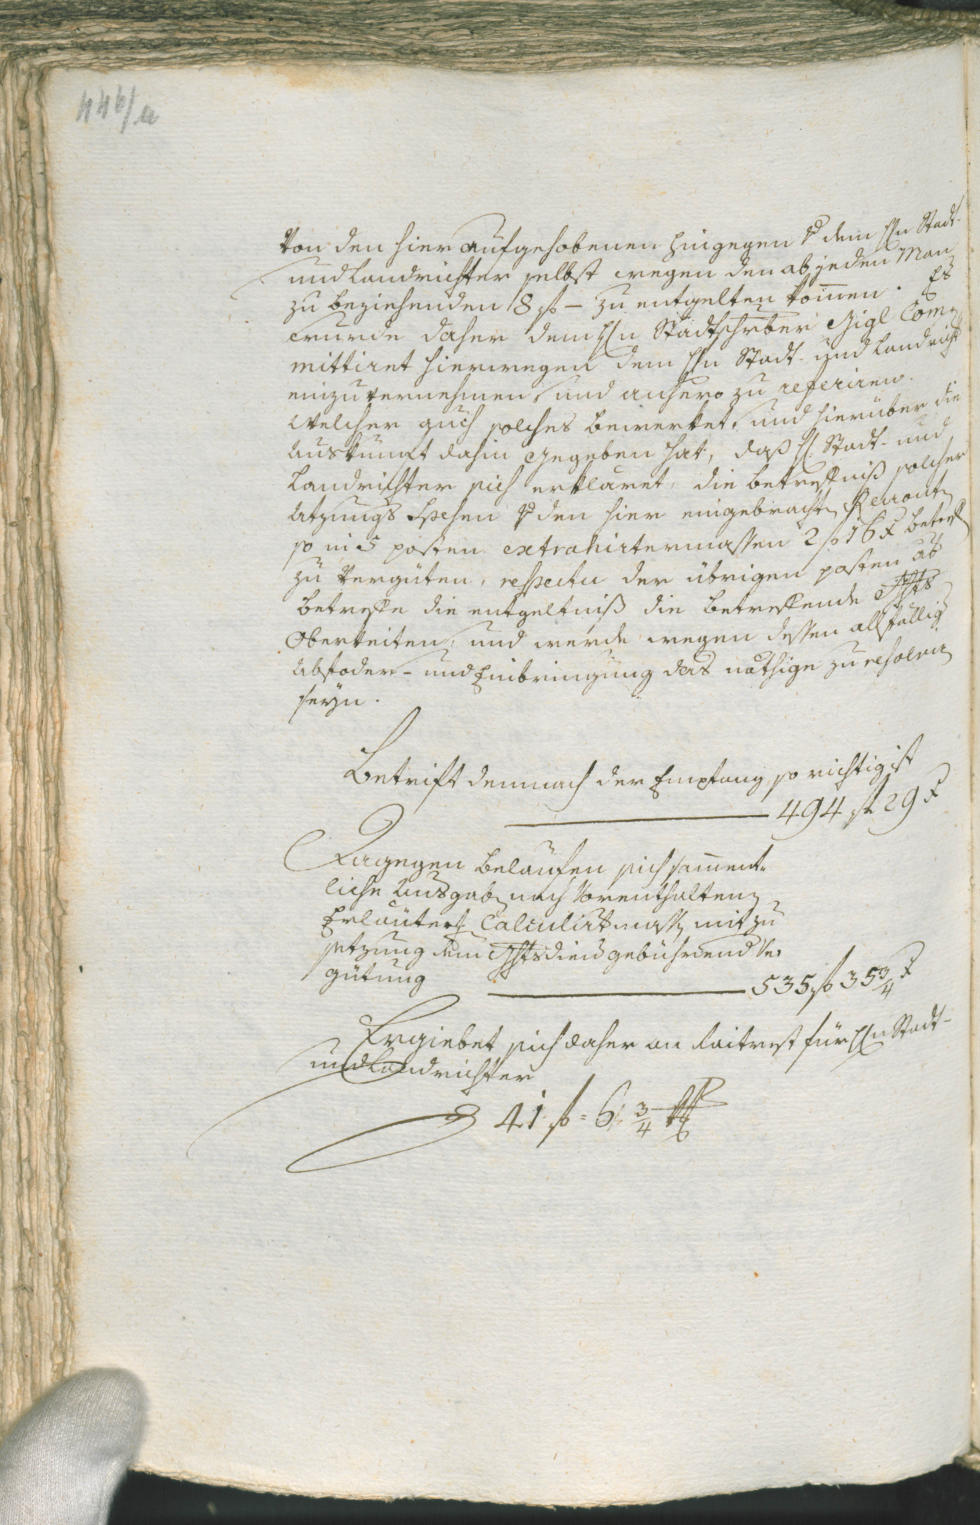 446/a
Von den hier aufgehobenen hingegen dem Hn Stadt-
und Landrichter selbst wegen den ab jeden Man
zu beziehenden 8 f – zu entgelten komen. Es
wurde daher dem Hn Stadtschreiber Gigl Com-
mittiret hierwegen dem Hn Stadt- und Landricht
einzuvernehmen, und anhero zu referiren.
Welcher auch solches bewerket, und hierüber die
Auskunft dahin gegeben hat, daß H. Stadt- und
Landrichter sich erkläret, die betreffniß solcher
Atzungs Spesen den hier eingebrachten
so in 5 posten extrahirtermassen 2 f 16 x betreff
zu Vergüten, respectu der übrigen posten aber
betreffe die entgeltniß die betreffende Gchts
Oberkeiten, und werde wegen dessen allfällig
Abfoder- und Einbringung das nöthige zu resolviren
seyn.
Betrift demnach der Empfang so richtig ist
494 f 29 x
Dagegen belaufen sich sament-
liche Ausgaben nach Vorenthaltener
Erläuter Calculirtmassen mit zu
setzung dem Gchtsdiener gebührend Ver
gütung 535 f 35 3/4 x
Ergiebet sich daher an Raitrest für Hn Stadt-
und Landrichter
41 f = 6 3/4 x